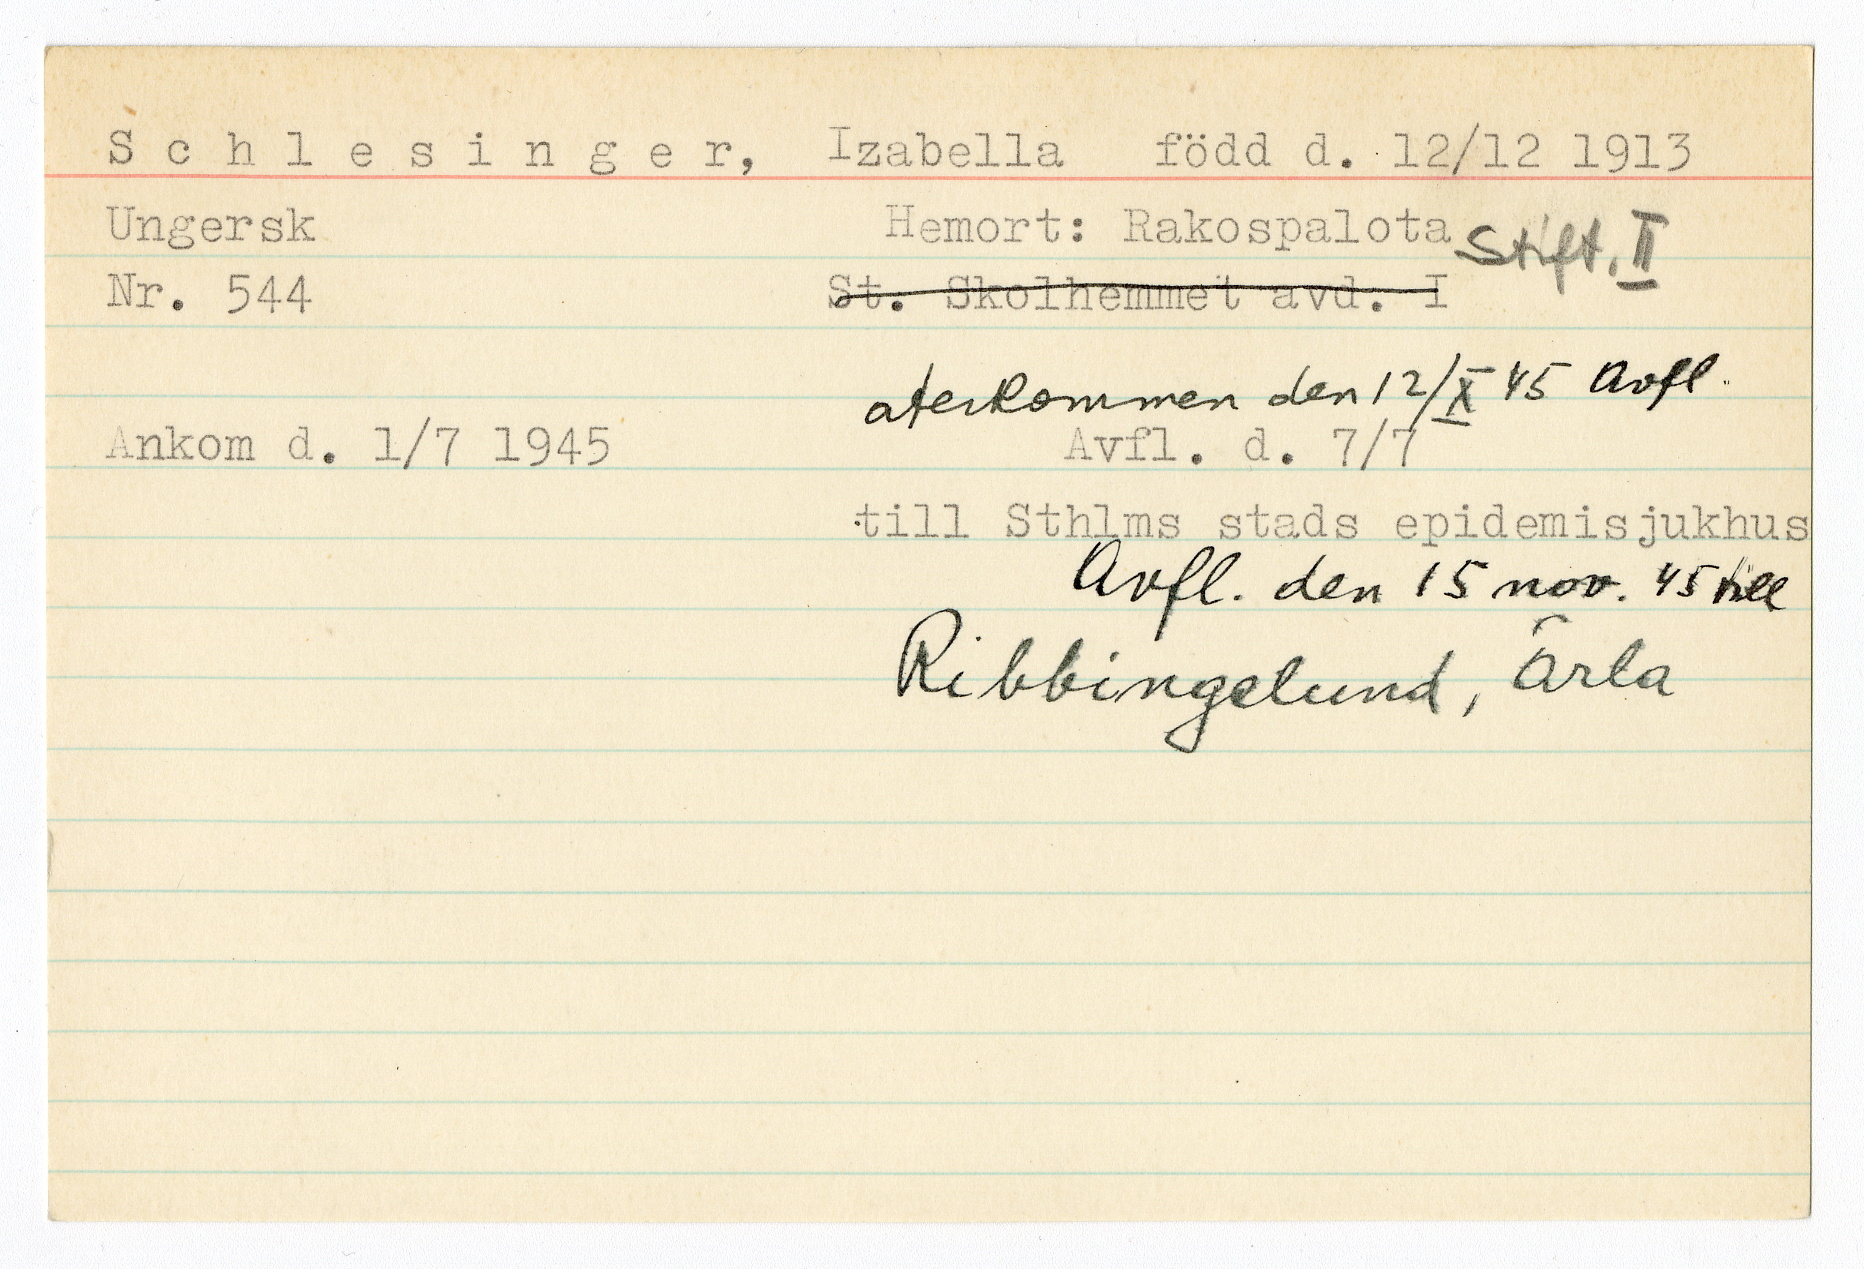 Schlesinger, Izabella född d. 12/12 1913
Ungersk Hemort: Rakospalota Stift. II
Nr. 544 St. Skolhemmet avd. I
aterkommen den 12/X 45 Avfl.
Ankom d. 1/7 1945 Avfl. d. 7/7
till Sthlms stads epidemisjukhus
Avfl. den 15 nov. 45 till
Ribbingelund, Ärla